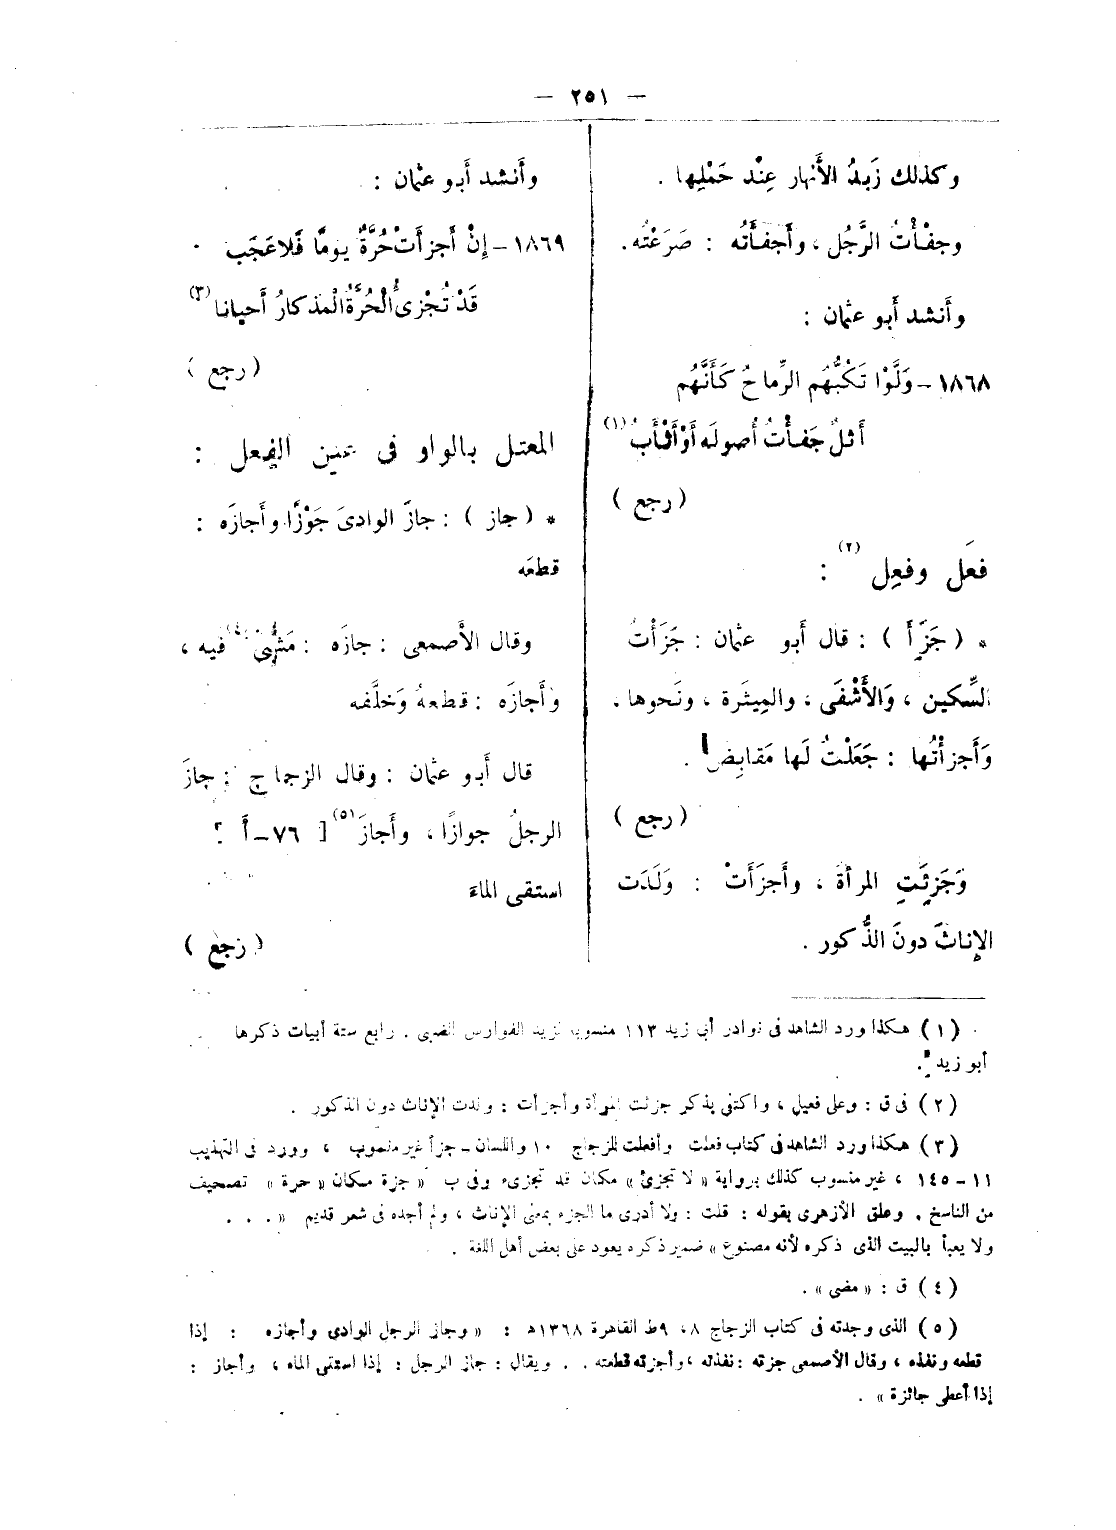 — ٢٥١ —
وكذلك زَبَدُ الأَنهار عِنْد حَمْلِها .
وجفْأتُ الرَّجُل ، وأَجفَأتُه : صَرَعْتُه .
وأَنشد أَبو عثمان :
١٨٦٨ – وَلَّوْا تَكُبُّهُم الرِّماحُ كَأَنَّهُم
أَثلٌ جَفأْتُ أُصولَه أَوْ أَثْأَبُ (١)
( رجع )
فعَل وفعِل (٢) :
* ( جَزَأَ ) : قال أَبو عثمان : جَزَأْتُ
السِّكين ، وَالأَشْفَى ، والمِيثَرة ، ونَحوها .
وَأَجزأْتُها : جَعَلْتُ لَها مَقابِض .
( رجع )
وَجَزِئَتِ المرأةَ ، وأَجزَأَتْ : وَلَدَت
الإناثَ دونَ الذُّكور .
وأَنشد أَبو عثمان :
١٨٦٩ – إِنْ أَجزأَتْ حُرَّةٌ يومًا فَلا عَجَب
قَدْ تُجْزِئُ الْحُرَّةُ المْذكارُ أَحيانا (٣)
( رجع )
المعتل بالواو فى عين الفعل :
* ( جاز ) : جازَ الوادىَ جَوْزًا وأَجازَه :
قطعَه
وقال الأَصمعى : جازَه : مَشَى (٤) فيه ،
وأَجازَه : قطعهُ وَخلَّفه
قال أَبو عثمان : وقال الزجاج : جازَ
الرجلُ جوازًا ، وأَجازَ (٥) [ ٧٦ – أَ ]
استقى الماءَ
( رجع )
(١) هكذا ورد الشاهد فى نوادر أبى زيد ١١٣ منسوبا لزيد الفوارس الضبى . رابع ستة أبيات ذكرها
أبو زيد .
(٢) فى ق : وعلى فعيل ، واكتفى بذكر جزئت المرأة وأجزأت : ولدت الإناث دون الذكور .
(٣) هكذا ورد الشاهد فى كتاب فعلت وأفعلت للزجاج ١٠ واللسان – جزأ غير منسوب ، وورد فى التهذيب
١١ – ١٤٥ ، غير منسوب كذلك برواية « لا تجزئ » مكان قد تجزىء وفى ب « جزة مكان « حرة » تصحيف
من الناسخ . وعلق الأزهرى بقوله : قلت : ولا أدرى ما الجزء بمعنى الإناث ، ولم أجده فى شعر قديم « . . .
ولا يعبأ بالبيت الذى ذكره لأنه مصنوع » ضمير ذكره يعود على بعض أهل اللغة .
(٤) ق : « مضى » .
(٥) الذى وجدته فى كتاب الزجاج ٨ ، ٩ ط القاهرة ١٣٦٨ه : « وجاز الرجل الوادى وأجازه : إذا
قطعه ونفذه ، وقال الأصمعى جزته : نفذته ، وأجزته قطعته . . ويقال : جاز الرجل : إذا استقى الماء ، وأجاز :
إذا أعطى جائزة » .